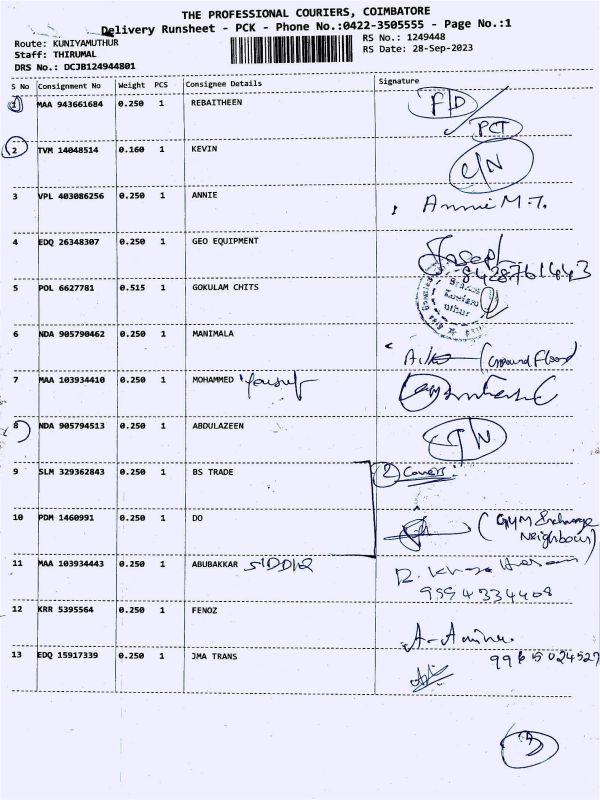 THE PROFESSIONAL COURIERS, COIMBATORE
Delivery Runsheet - PCK - Phone No.:0422-3505555 - Page No.:1
Route: KUNIYAMUTHUR
Staff: THIRUMAL
DRS No.: DCJB124944801
RS No.: 1249448
RS Date: 28-Sep-2023
S No Consignment No Weight PCS Consignee Details Signature
1 MAA 943661684 0.250 1 REBAITHEEN F/D
PCT
2 TVM 14048514 0.160 1 KEVIN C/N
3 VPL 403086256 0.250 1 ANNIE Annie M.T.
4 EDQ 26348307 0.250 1 GEO EQUIPMENT Joseph
8428761443
5 POL 6627781 0.515 1 GOKULAM CHITS
6 NDA 905790462 0.250 1 MANIMALA (Ground Floor)
7 MAA 103934410 0.250 1 MOHAMMED Yousuf
8 NDA 905794513 0.250 1 ABDULAZEEN
9 SLM 329362843 0.250 1 BS TRADE 2 Covers
10 PDM 1460991 0.250 1 DO (GYM Exchange
Neighbour)
11 MAA 103934443 0.250 1 ABUBAKKAR SIDDIQ
9994334408
12 KRR 5395564 0.250 1 FENOZ A-Amina
13 EDQ 15917339 0.250 1 JMA TRANS 9965024527